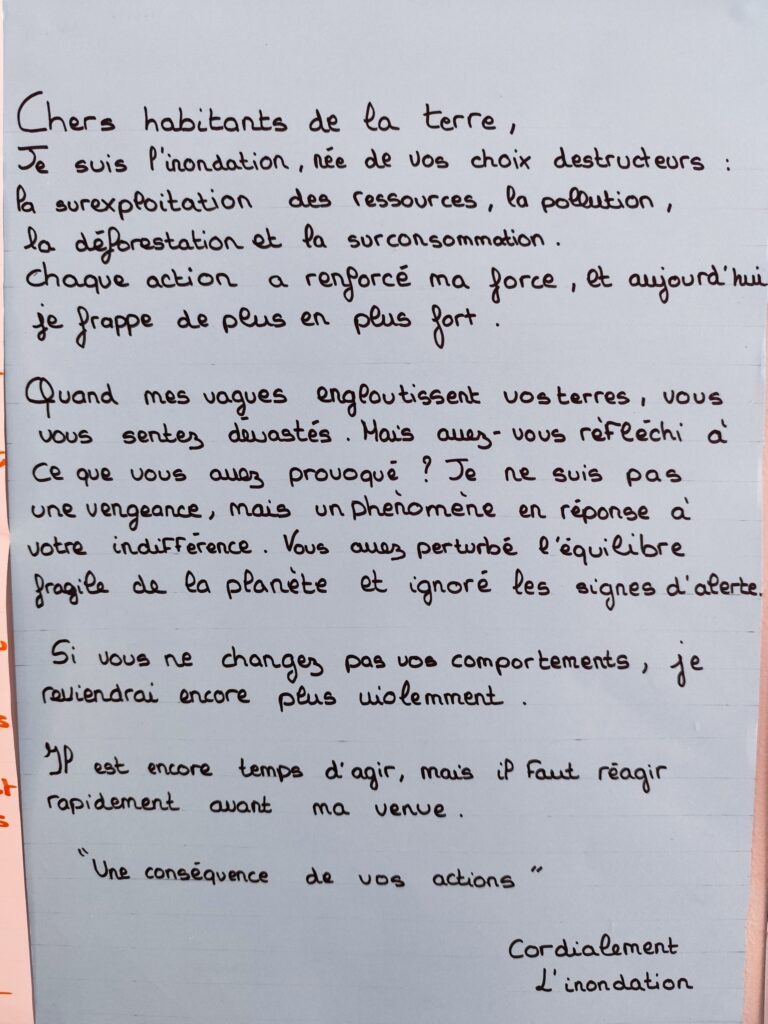 Chers habitants de la terre,
Je suis l'inondation, née de vos choix destructeurs :
la surexploitation des ressources, la pollution,
la déforestation et la surconsommation.
chaque action a renforcé ma force, et aujourd'hui
je frappe de plus en plus fort.
Quand mes vagues engloutissent vos terres, vous
vous sentez dévastés. Mais avez-vous réfléchi à
ce que vous avez provoqué ? Je ne suis pas
une vengeance, mais un phénomène en réponse à
votre indifférence. Vous avez perturbé l'équilibre
fragile de la planète et ignoré les signes d'alerte.
Si vous ne changez pas vos comportements, je
reviendrai encore plus violemment.
Il est encore temps d'agir, mais il faut réagir
rapidement avant ma venue.
"Une conséquence de vos actions"
Cordialement
L'inondation